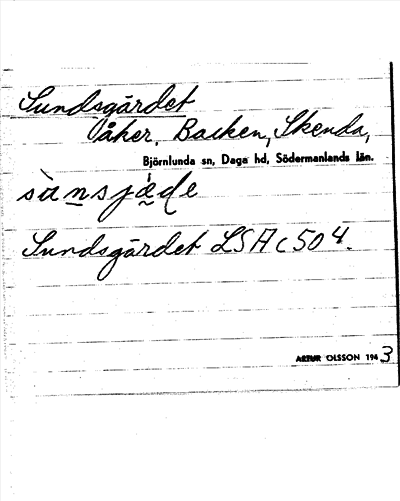 Sundsgärdet
Våker, Backen, Skenda,
Björnlunda sn, Daga hd, Södermanlands län.
Sundsgärdet LSA C 504.
ARTUR OLSSON 1943